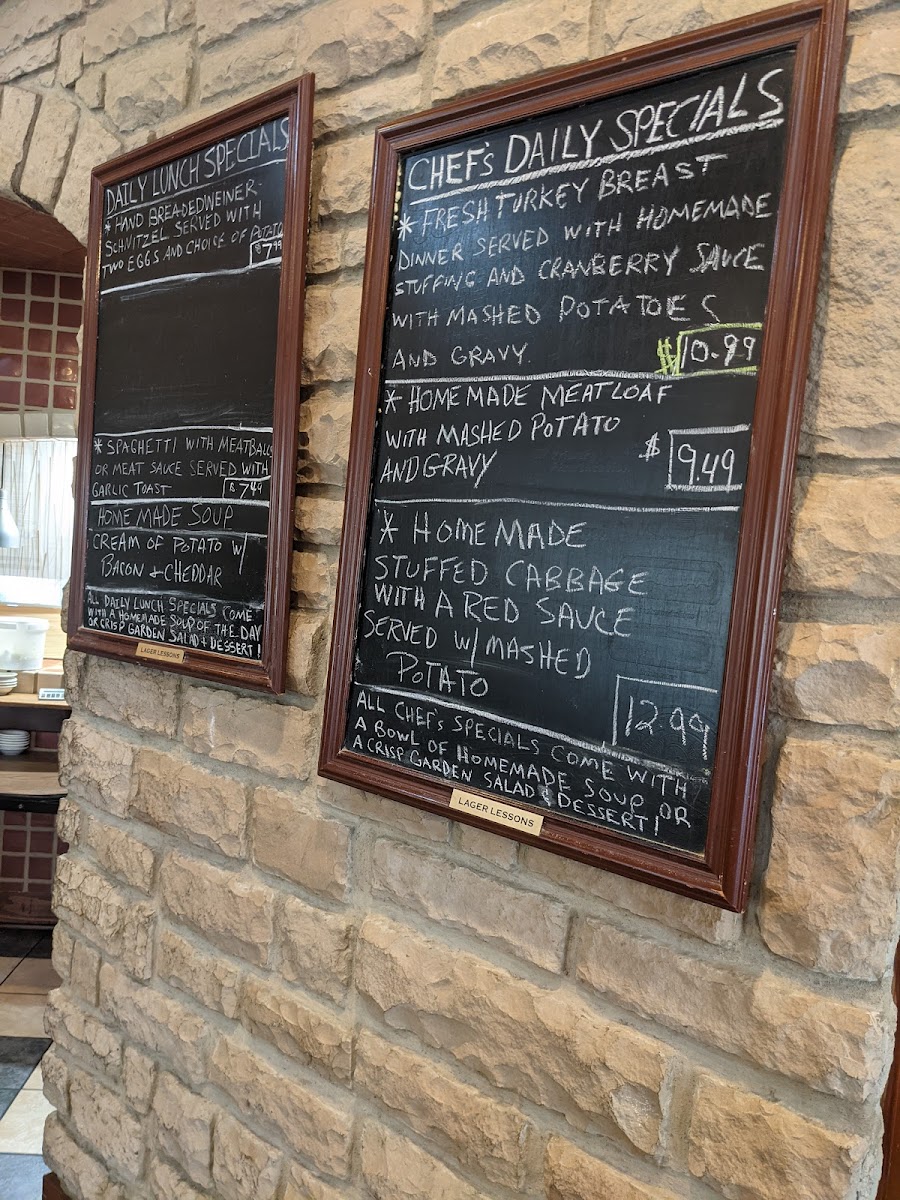 DAILY LUNCH SPECIALS
* HAND BREADEDWEINER
SCHNITZEL SERVED WITH
TWO EGGS AND CHOICE OF POTATO
$7.99
* SPAGHETTI WITH MEATBALLS
OR MEAT SAUCE SERVED WITH
GARLIC TOAST $7.49
HOME MADE SOUP
CREAM OF POTATO W/
BACON & CHEDDAR
ALL DAILY LUNCH SPECIALS COME
WITH A HOMEMADE SOUP OF THE DAY
OR CRISP GARDEN SALAD & DESSERT!
LAGER LESSONS
CHEF'S DAILY SPECIALS
* FRESH TURKEY BREAST
DINNER SERVED WITH HOMEMADE
STUFFING AND CRANBERRY SAUCE
WITH MASHED POTATOES
AND GRAVY. $10.99
* HOMEMADE MEATLOAF
WITH MASHED POTATO
AND GRAVY $9.49
* HOMEMADE
STUFFED CABBAGE
WITH A RED SAUCE
SERVED W/ MASHED
POTATO 12.99
ALL CHEF'S SPECIALS COME WITH
A BOWL OF HOMEMADE SOUP OR
A CRISP GARDEN SALAD & DESSERT!
LAGER LESSONS